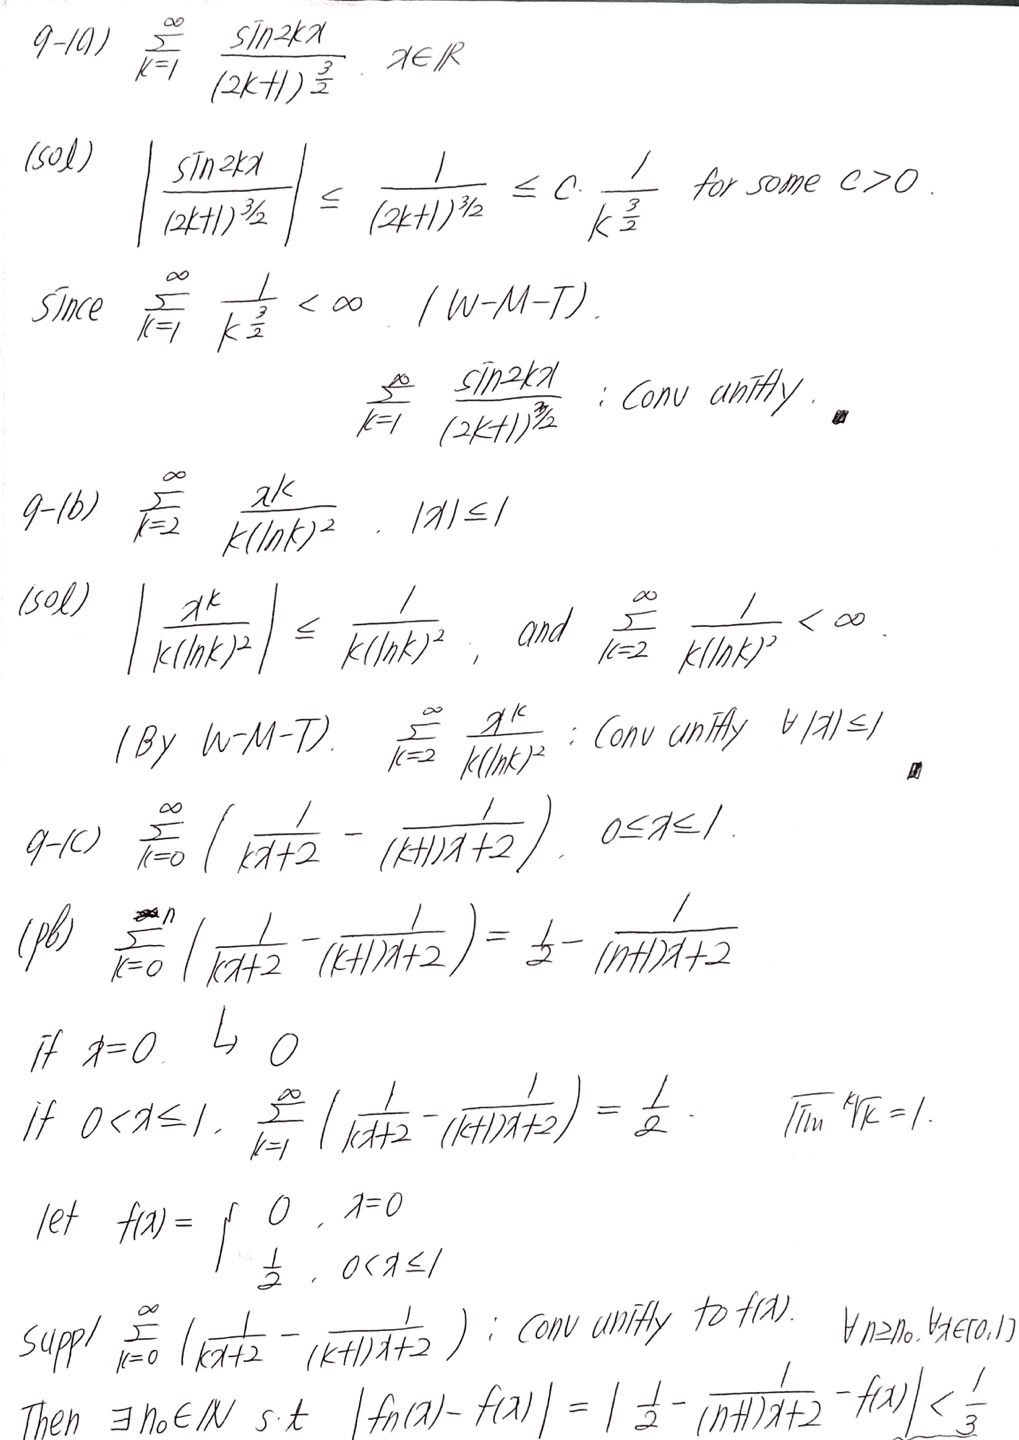 9-(a) ∑_{k=1}^{∞} sin2kx / (2k+1)^{3/2} . x∈ℝ
(sol) | sin2kx / (2k+1)^{3/2} | ≤ 1 / (2k+1)^{3/2} ≤ C· 1 / k^{3/2} for some C>0.
since ∑_{k=1}^{∞} 1 / k^{3/2} < ∞ . (W-M-T).
∑_{k=1}^{∞} sin2kx / (2k+1)^{3/2} : conv unifly. ∎
9-(b) ∑_{k=2}^{∞} x^k / k(lnk)^2 . |x|≤1
(sol) | x^k / k(lnk)^2 | ≤ 1 / k(lnk)^2 , and ∑_{k=2}^{∞} 1 / k(lnk)^2 < ∞.
(By W-M-T). ∑_{k=2}^{∞} x^k / k(lnk)^2 : conv unifly ∀|x|≤1 ∎
9-(c) ∑_{k=0}^{∞} ( 1 / kx+2 − 1 / (k+1)x+2 ) . 0≤x≤1.
(pf) ∑_{k=0}^{n} ( 1 / kx+2 − 1 / (k+1)x+2 ) = 1/2 − 1 / (n+1)x+2
if x=0. ↳ 0
if 0<x≤1. ∑_{k=1}^{∞} ( 1 / kx+2 − 1 / (k+1)x+2 ) = 1/2 . \overline{lim} ᵏ√k = 1.
let f(x) = { 0 , x=0
1/2 , 0<x≤1
Supp/ ∑_{k=0}^{∞} ( 1 / kx+2 − 1 / (k+1)x+2 ) : conv unifly to f(x). ∀n≥n₀. ∀x∈[0,1]
Then ∃n₀∈ℕ s.t |fn(x) − f(x)| = | 1/2 − 1 / (n+1)x+2 − f(x) | < 1/3